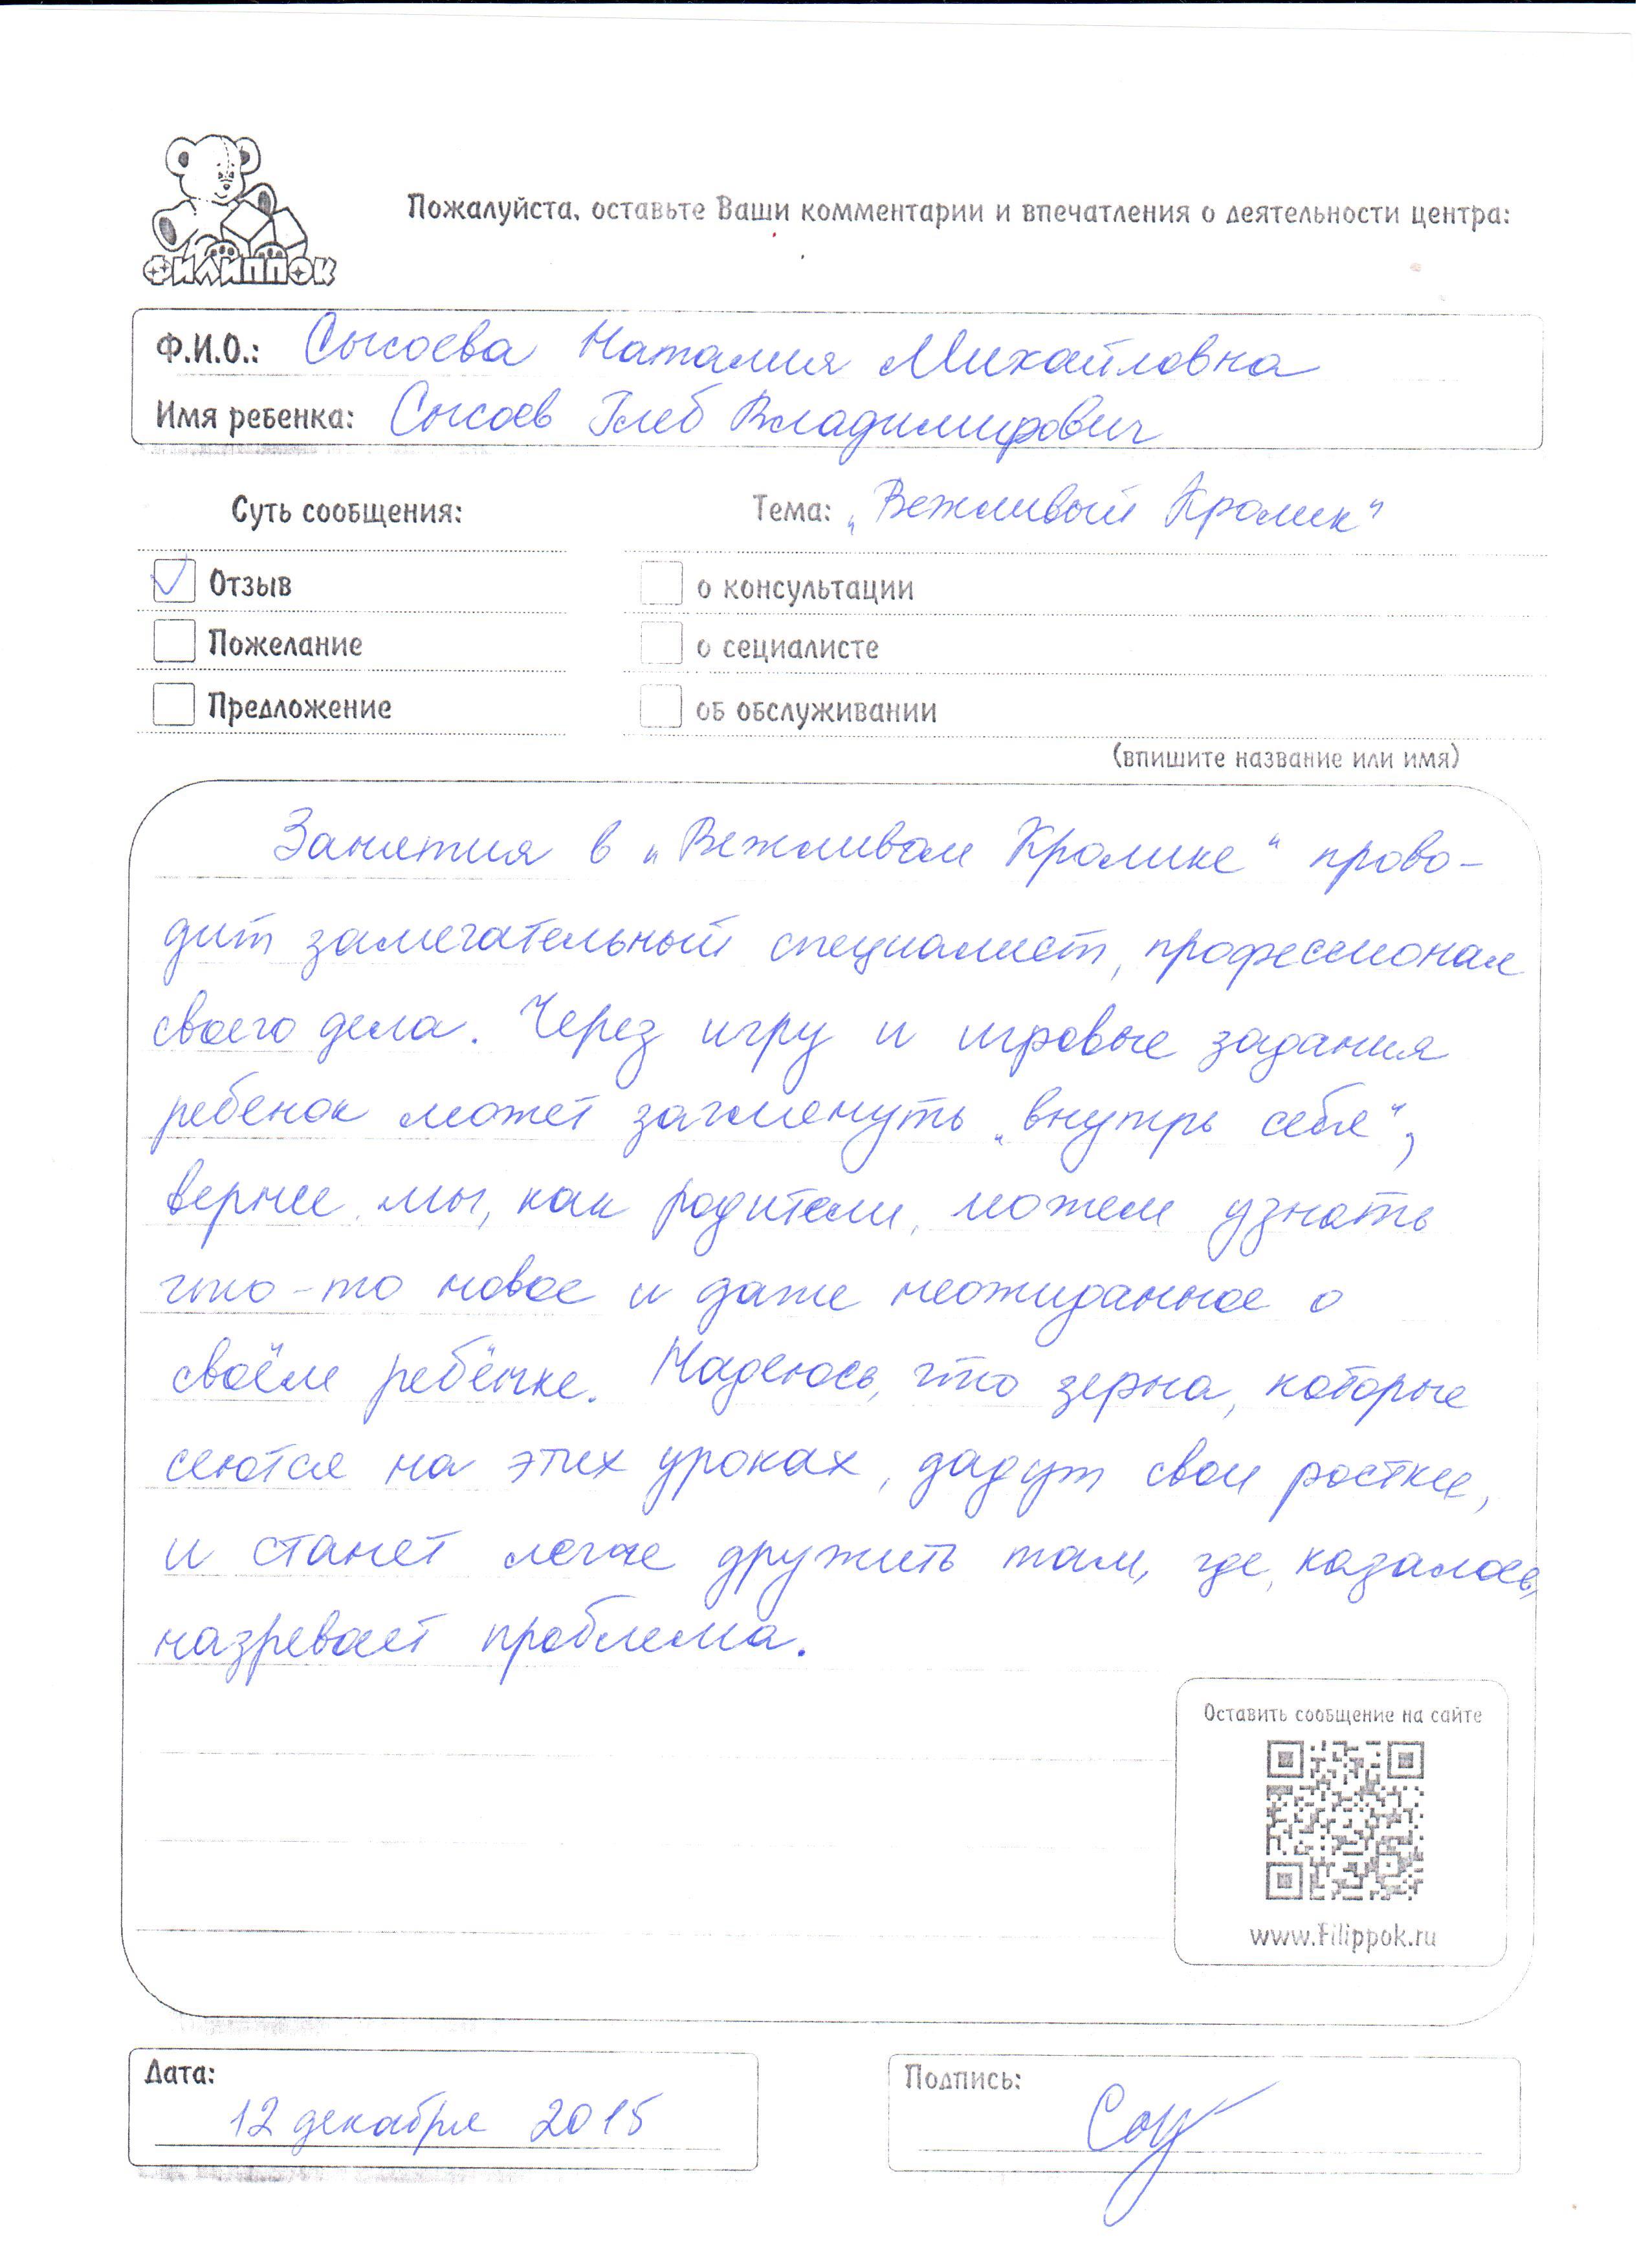 Пожалуйста, оставьте Ваши комментарии и впечатления о деятельности центра:
ФИЛИППОК
Ф.И.О.: Сысоева Наталия Михайловна
Имя ребенка: Сысоев Глеб Владимирович
Суть сообщения:
Тема: „Вежливый Кролик“
Отзыв
о консультации
Пожелание
о сециалисте
Предложение
об обслуживании
(впишите название или имя)
Занятия в „Вежливом Кролике“ прово-
дит замечательный специалист, профессионал
своего дела. Через игру и игровые задания
ребенок может заглянуть „внутрь себя“,
вернее, мы, как родители, можем узнать
что-то новое и даже неожиданное о
своём ребёнке. Надеюсь, что зерна, которые
сеются на этих уроках, дадут свои ростки,
и станет легче дружить там, где, казалось,
назревает проблема.
Оставить сообщение на сайте
www.Filippok.ru
Дата:
12 декабря 2015
Подпись: